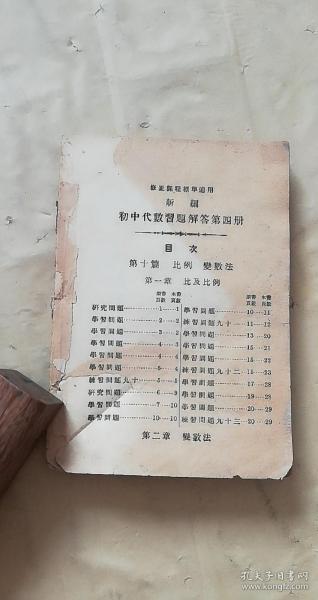 修正課程標準適用
新編
初中代數習題解答第四册
目次
第十篇 比例 變數法
第一章 比及比例
原書頁數 本書頁數
研究問題 1 1
學習問題 2 2
學習問題 3 2
學習問題 4 3
學習問題 4 4
學習問題 5 4
練習問題九十 5 5
研究問題 6 9
學習問題 7 10
學習問題 10 10
原書頁數 本書頁數
學習問題 10 11
練習問題九十一 11 12
學習問題 13 20
學習問題 15 21
學習問題 15 22
練習問題九十二 15 23
學習問題 17 28
學習問題 19 28
學習問題 20 29
練習問題九十三 20 29
第二章 變數法
孔夫子旧书网